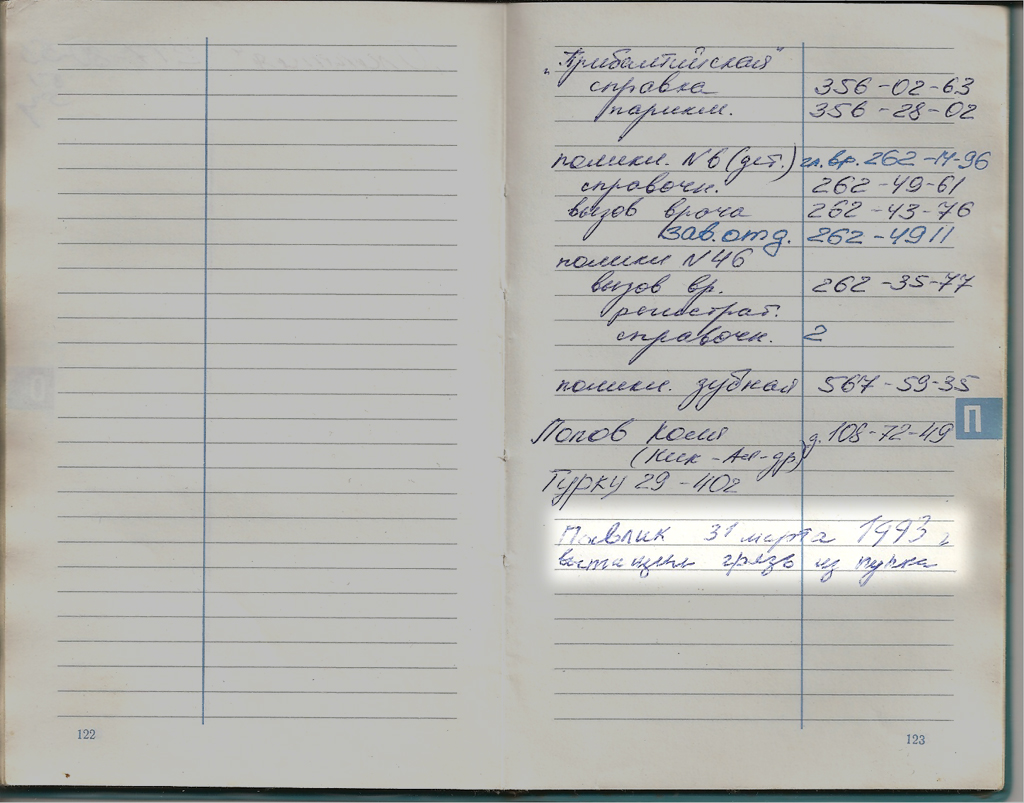 „Прибалтийская"
справка 356-02-63
парикм. 356-28-02
поликл. N6 (дет.) гл.вр. 262-14-96
справочн. 262-49-61
вызов врача 262-43-76
зав.отд. 262-4911
поликл N46
вызов вр. 262-35-77
регистрат.
справочн. 2
поликл. зубная 567-59-35
П
Попов Коля д. 108-72-49
(Ник-Ал-др)
Турку 29-402
Павлик 31 марта 1993 г
вытащил грязь из пупка
122
123